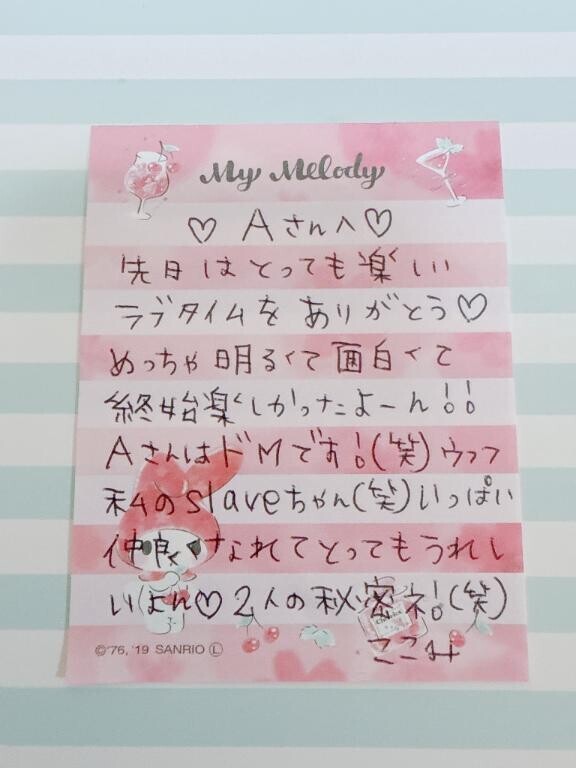 My Melody
♡ Aさんへ♡
先日はとっても楽しい
ラブタイムをありがとう♡
めっちゃ明るくて面白くて
終始楽しかったよーん!!
AさんはドMです!(笑)ウフフ
私のslaveちゃん(笑)いっぱい
仲良くなれてとってもうれし
いよん♡2人の秘密ネ!(笑)
ここみ
©'76, '19 SANRIO Ⓛ